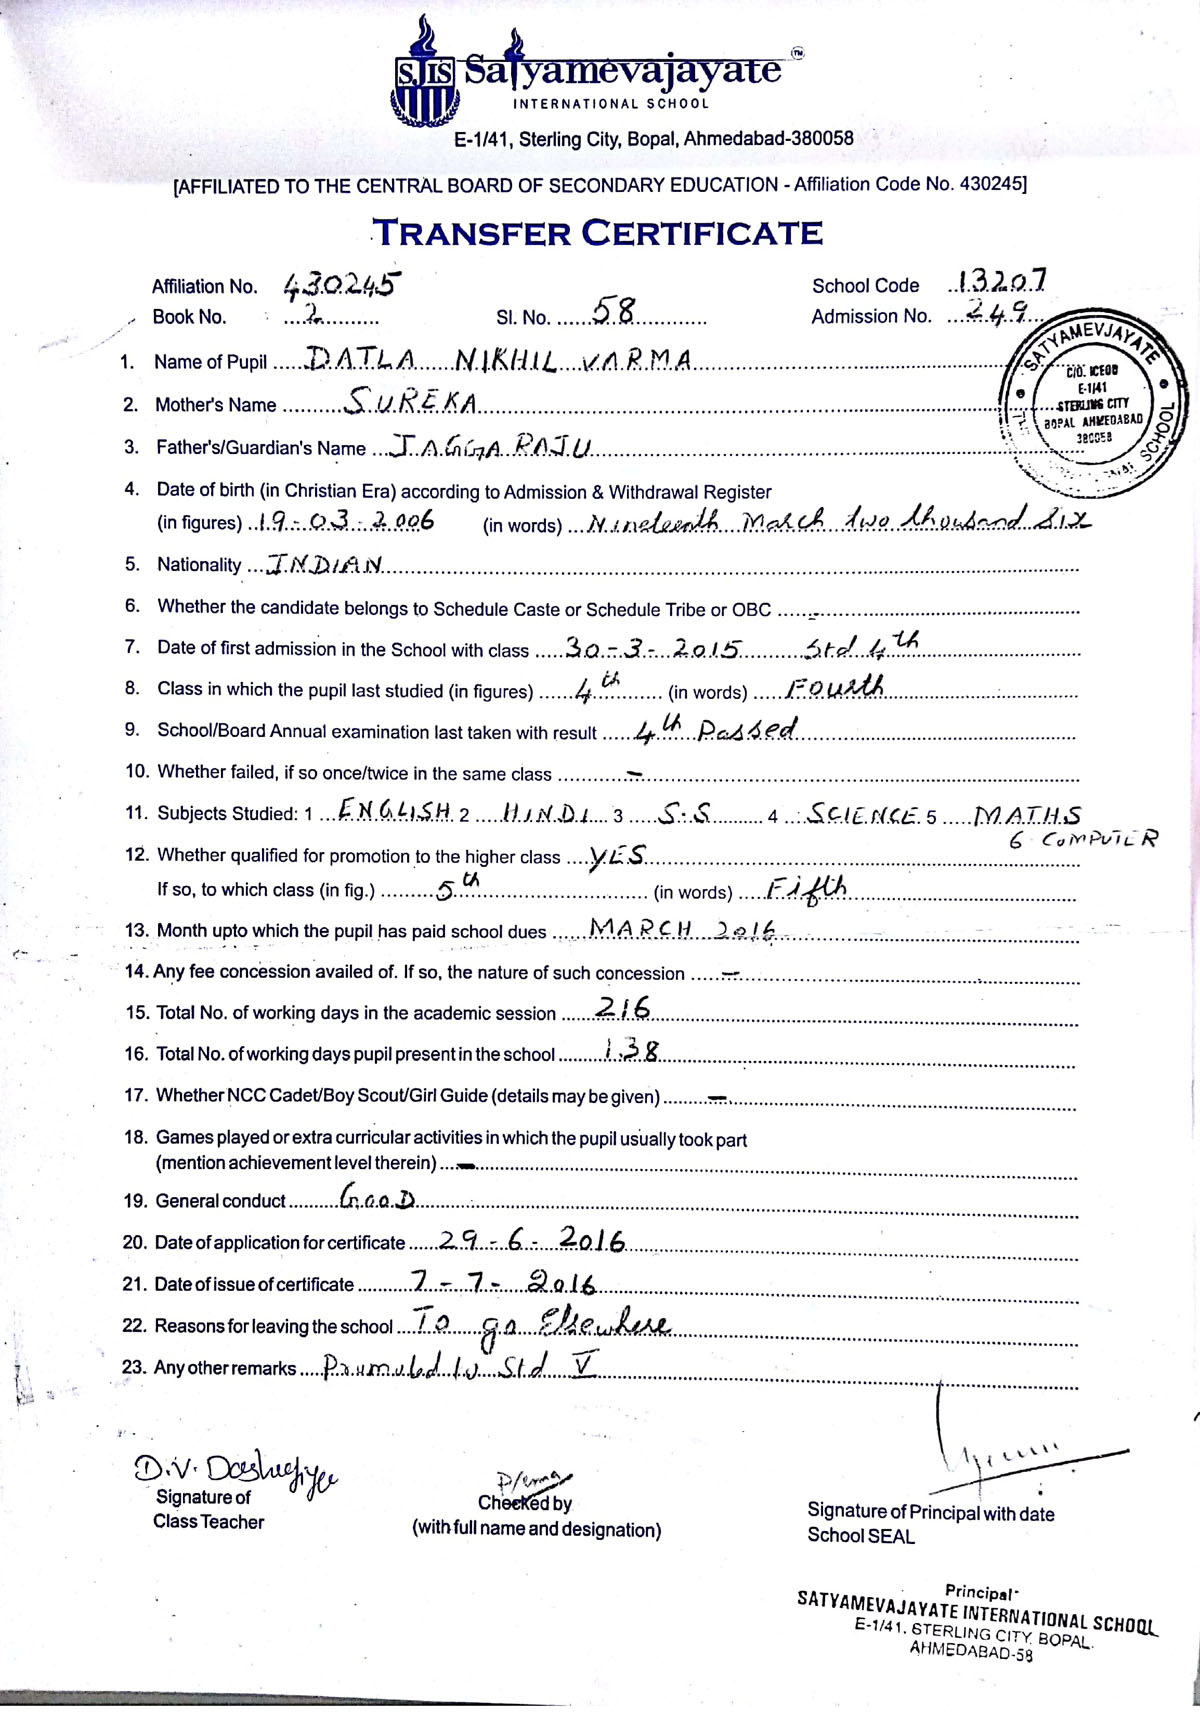 SJIS Satyamevajayate TM
INTERNATIONAL SCHOOL
E-1/41, Sterling City, Bopal, Ahmedabad-380058
[AFFILIATED TO THE CENTRAL BOARD OF SECONDARY EDUCATION - Affiliation Code No. 430245]
TRANSFER CERTIFICATE
Affiliation No. 430245 School Code 13207
Book No. 2 Sl. No. 58 Admission No. 249
SATYAMEVJAYATE
SCHOOL
C/O. ICEOD
E-1/41
STERLING CITY
BOPAL AHMEDABAD
380058
1. Name of Pupil DATLA NIKHIL VARMA
2. Mother's Name SUREKA
3. Father's/Guardian's Name JAGGA RAJU
4. Date of birth (in Christian Era) according to Admission & Withdrawal Register
(in figures) 19-03-2006 (in words) Nineteenth March two thousand Six
5. Nationality INDIAN
6. Whether the candidate belongs to Schedule Caste or Schedule Tribe or OBC -
7. Date of first admission in the School with class 30-3-2015 Std 4th
8. Class in which the pupil last studied (in figures) 4th (in words) Fourth
9. School/Board Annual examination last taken with result 4th Passed
10. Whether failed, if so once/twice in the same class -
11. Subjects Studied: 1 ENGLISH 2 HINDI 3 S.S 4 SCIENCE 5 MATHS
6 COMPUTER
12. Whether qualified for promotion to the higher class YES
If so, to which class (in fig.) 5th (in words) Fifth
13. Month upto which the pupil has paid school dues MARCH 2016
14. Any fee concession availed of. If so, the nature of such concession -
15. Total No. of working days in the academic session 216
16. Total No. of working days pupil present in the school 138
17. Whether NCC Cadet/Boy Scout/Girl Guide (details may be given) -
18. Games played or extra curricular activities in which the pupil usually took part
(mention achievement level therein) -
19. General conduct GOOD
20. Date of application for certificate 29-6-2016
21. Date of issue of certificate 7-7-2016
22. Reasons for leaving the school To go Elsewhere
23. Any other remarks Promoted to Std V
D.V.
Signature of
Class Teacher
Checked by
(with full name and designation)
Signature of Principal with date
School SEAL
Principal
SATYAMEVAJAYATE INTERNATIONAL SCHOOL
E-1/41, STERLING CITY, BOPAL.
AHMEDABAD-58